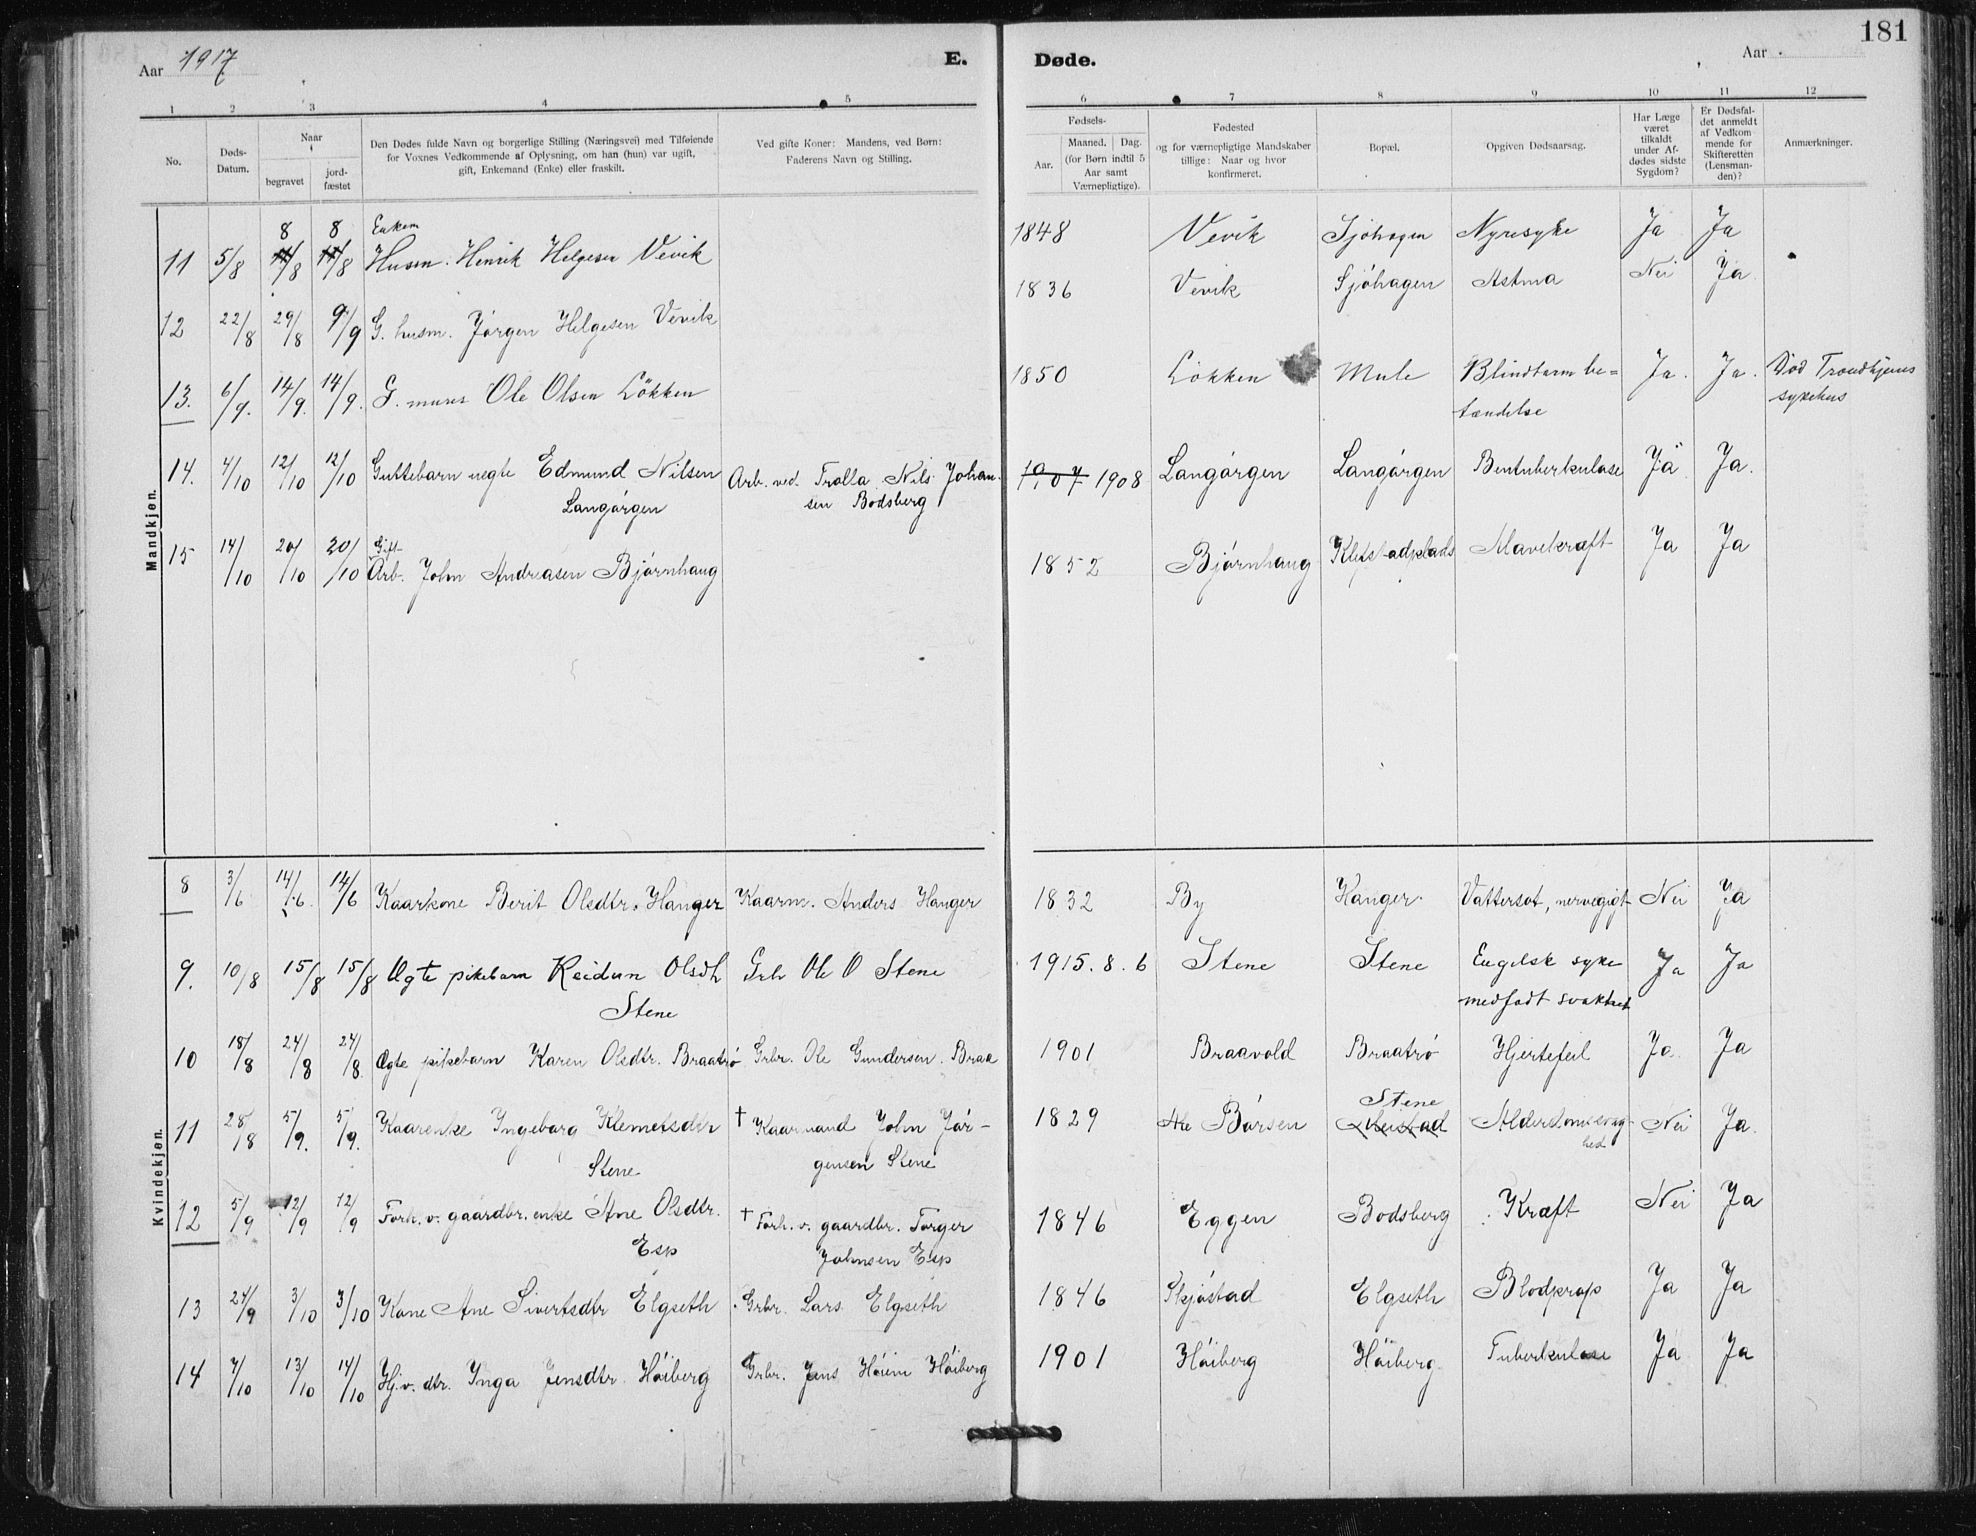 181
Aar 1917
E.
Døde.
Aar
1 2 3 4 5 6 7 8 9 10 11 12
No.
Døds-
Datum.
Naar
begravet
jord-
fæstet
Den Dødes fulde Navn og borgerlige Stilling (Næringsvei) med Tilføiende
for Voxnes Vedkommende af Oplysning, om han (hun) var ugift,
gift, Enkemand (Enke) eller fraskilt.
Ved gifte Koner: Mandens, ved Børn:
Faderens Navn og Stilling.
Fødsels-
Aar.
Maaned. Dag.
(for Børn indtil 5
Aar samt
Værnepligtige).
Fødested
og for værnepligtige Mandskaber
tillige: Naar og hvor
konfirmeret.
Bopæl.
Opgiven Dødsaarsag.
Har Læge
været
tilkaldt
under Af-
dødes sidste
Sygdom?
Er Dødsfal-
det anmeldt
af Vedkom
mende for
Skifteretten
(Lensman-
den)?
Anmærkninger.
Mandkjøn.
8 8 Enkem
11 5/8 11/8 11/8 Husm. Henrik Helgesen Vevik 1848 Vevik Sjøhagen Nyresyke Ja Ja
12 22/8 29/8 9/9 G. husm. Jørgen Helgesen Vevik 1836 Vevik Sjøhagen Astma Nei Ja
13. 6/9. 14/9. 14/9. G. murer Ole Olsen Løkken 1850 Løkken Mule Blindtarmbe= Ja. Ja. Død Trondhjems
tændelse sykehus
14. 4/10 12/10 12/10 Guttebarn uegte Edmund Nilsen Arb. ved. Trolla Nils Johan- 1907 1908 Langørgen Langørgen Bentuberkulose Ja Ja.
Langørgen sen Bodsberg
15 14/10 20/10 20/10 Gift
Arb. John Andreasen Bjørnhaug 1852 Bjørnhaug Klefstadplads Mavekræft Ja Ja
Kvindekjøn.
8 3/6 14/6. 14/6 Kaarkone Berit Olsdtr. Hanger Kaarm. Anders Hanger 1832 By Hanger Vattersot, nervegigt Nei Ja
9. 10/8 15/8 15/8 Ægte pikebarn Reidun Olsdt Grb Ole O Stene 1915. 8. 6 Stene Stene Engelsk syke Ja Ja
Stene medfødt svakhet
10 18/8 24/8 24/8. Ægte pikebarn Karen Olsdtr. Braatrø Grbr. Ole Gundersen Braa 1901 Braavold Braatrø Hjertefeil Ja. Ja
11 28/8 5/9. 5/9. Kaarenke Ingeborg Klemetsdtr † Kaarmand John Jør- 1829 Børsen Stene Alderdomssvag- Nei Ja.
Stene gensen Stene hed
12 5/9 12/9 12/9 Forh. v. gaardbr. enke Ane Olsdtr. † Forh. v. gaardbr. Torger 1846 Eggen Bodsberg Kræft Nei Ja
Esp Johnsen Esp
13 24/9 3/10 3/10 Kone Ane Sivertsdtr Elgseth Grbr. Lars Elgseth 1846 Skjøstad Elgseth Blodprop Ja Ja
14 7/10 13/10 14/10 Hj.v. dtr. Inga Jensdtr. Høiberg Grbr. Jens Høiem Høiberg 1901 Høiberg Høiberg Tuberkulose Ja Ja